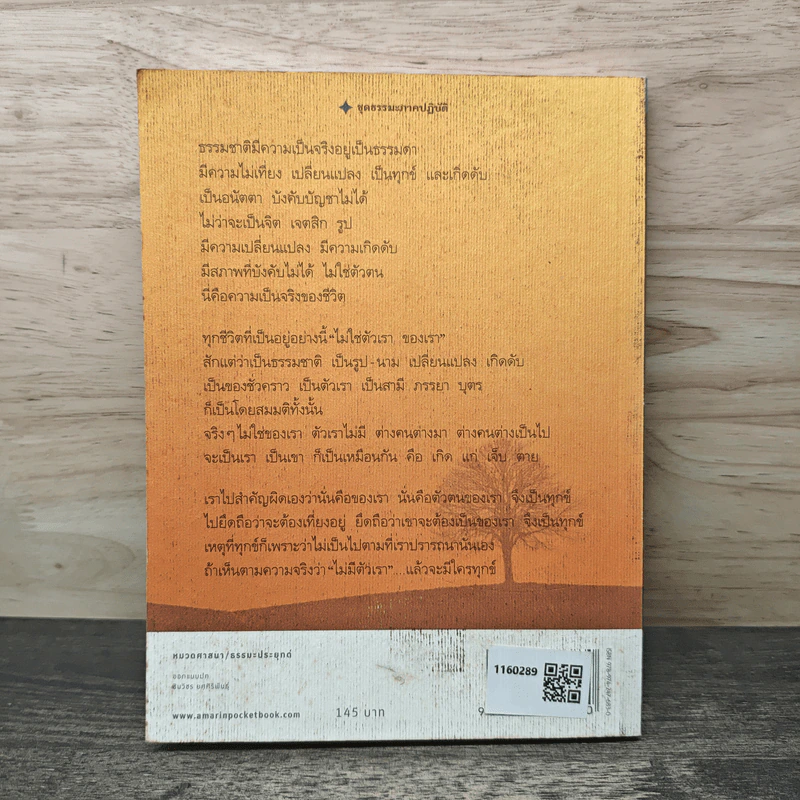 ชุดธรรมะภาคปฏิบัติ
ธรรมชาติมีความเป็นจริงอยู่เป็นธรรมดา
มีความไม่เที่ยง เปลี่ยนแปลง เป็นทุกข์ และเกิดดับ
เป็นอนัตตา บังคับบัญชาไม่ได้
ไม่ว่าจะเป็นจิต เจตสิก รูป
มีความเปลี่ยนแปลง มีความเกิดดับ
มีสภาพที่บังคับไม่ได้ ไม่ใช่ตัวตน
นี่คือความเป็นจริงของชีวิต
ทุกชีวิตที่เป็นอยู่อย่างนี้ “ไม่ใช่ตัวเรา ของเรา”
สักแต่ว่าเป็นธรรมชาติ เป็นรูป-นาม เปลี่ยนแปลง เกิดดับ
เป็นของชั่วคราว เป็นตัวเรา เป็นสามี ภรรยา บุตร
ก็เป็นโดยสมมติทั้งนั้น
จริงๆ ไม่ใช่ของเรา ตัวเราไม่มี ต่างคนต่างมา ต่างคนต่างเป็นไป
จะเป็นเรา เป็นเขา ก็เป็นเหมือนกัน คือ เกิด แก่ เจ็บ ตาย
เราไปสำคัญผิดเองว่านั่นคือของเรา นั่นคือตัวตนของเรา จึงเป็นทุกข์
ไปยึดถือว่าจะต้องเที่ยงอยู่ ยึดถือว่าเขาจะต้องเป็นของเรา จึงเป็นทุกข์
เหตุที่ทุกข์ก็เพราะว่าไม่เป็นไปตามที่เราปรารถนานั่นเอง
ถ้าเห็นตามความจริงว่า “ไม่มีตัวเรา”...แล้วจะมีใครทุกข์
หมวดศาสนา/ธรรมะประยุกต์
ออกแบบปก
www.amarinpocketbook.com
145 บาท
1160289
9